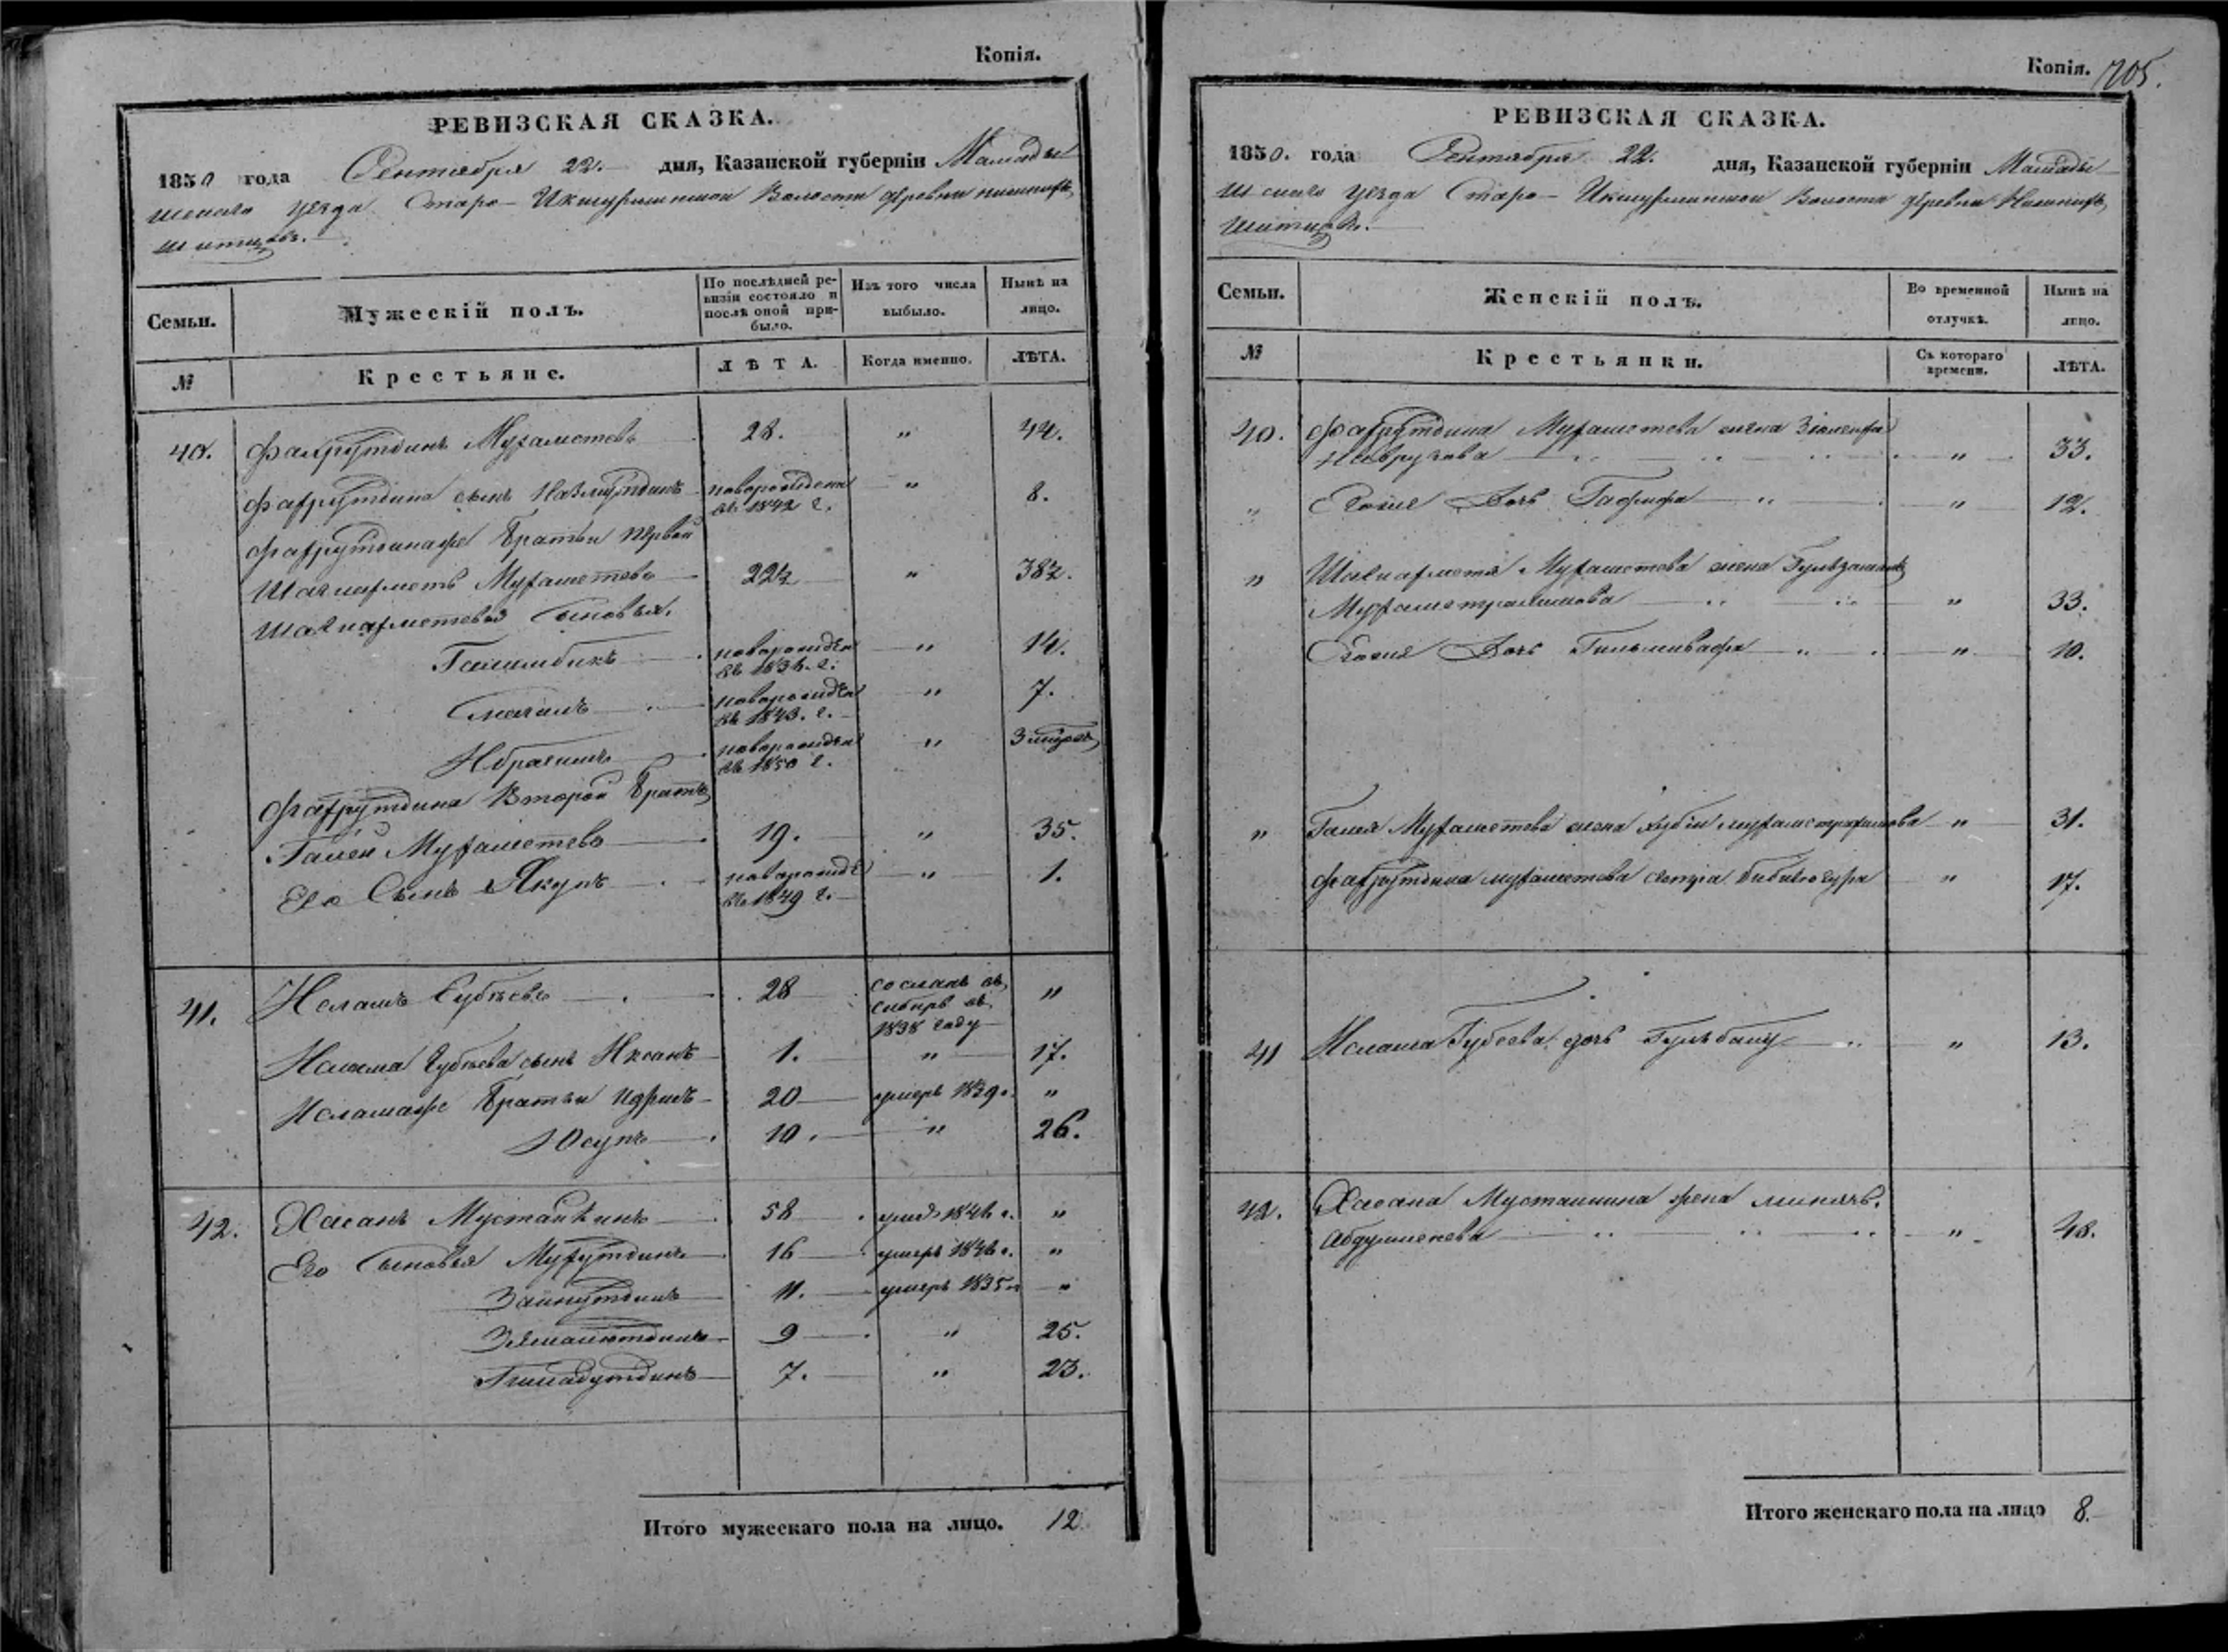 Копія.
РЕВИЗСКАЯ СКАЗКА.
1850 года Сентября 22. дня, Казанской губерніи Мамады
шскаго уезда Старо-Икшурминской Волости деревни
По послѣдней ре-
визіи состояло и
послѣ оной при-
было.
Изъ того числа
выбыло.
Нынѣ на
лицо.
Семьи.
Мужескій полъ.
№
Крестьяне.
ЛѢТА.
Когда именно.
ЛѢТА.
40. Фахрутдинъ Мухаметовъ 28. " 44.
Фахрутдина сынъ Назмутдинъ новорожденъ " 8.
въ 1842 г.
Фахрутдинаже братья первой
Шагиахметъ Мухаметевъ 22½ " 38½.
Шагиахметевы сыновья.
новорожден " 14.
въ 1836. г.
новорожден " 7.
въ 1843. г.
Ибрагимъ новорожден "
въ 1850 г.
Фахрутдина Второй братъ
Галей Мухаметевъ 19. " 35.
Его Сынъ Якупъ новорожд "  1.
въ 1849 г.
41. Исламъ Губеевъ 28 сосланъ въ "
сибирь въ
1838 году
Ислама Губеева сынъ Иксанъ 1. " 17.
Исламаже братья Идрисъ 20 умеръ 1839 г. "
Юсупъ 10. " 26.
42. Хасанъ Мустакинъ 58 умеръ 1846 г. "
Его Сыновья Мухутдинъ 16 умеръ 1846 г. "
Зайнутдинъ 11. умеръ 1835 г "
9 " 25.
Гимадутдинъ 7. " 23.
Итого мужескаго пола на лицо. 12
Копія. 705.
РЕВИЗСКАЯ СКАЗКА.
1850. года Сентября 22. дня, Казанской губерніи Мамады
шскаго уезда Старо-Икшурминской Волости деревни
Семьи.
Женскій полъ.
Во временной
отлучкѣ.
Нынѣ на
лицо.
№
Крестьянки.
Съ котораго
времени.
ЛѢТА.
40. Фахрутдина Мухаметева жена
Наврузова " 33.
" Егоже Дочь Гафифа " 12.
" Шагиахметя Мухаметова жена
Мухаметрахимова " 33.
Егоже Дочь " 10.
" Галея Мухаметева жена Хубби Мухаметрахимова " 31.
Фахрутдина мухаметева сестра " 17.
41 Ислама Губеева дочь Гульбану " 13.
42. Хасана Мустакина жена
" 48.
Итого женскаго пола на лицо 8.